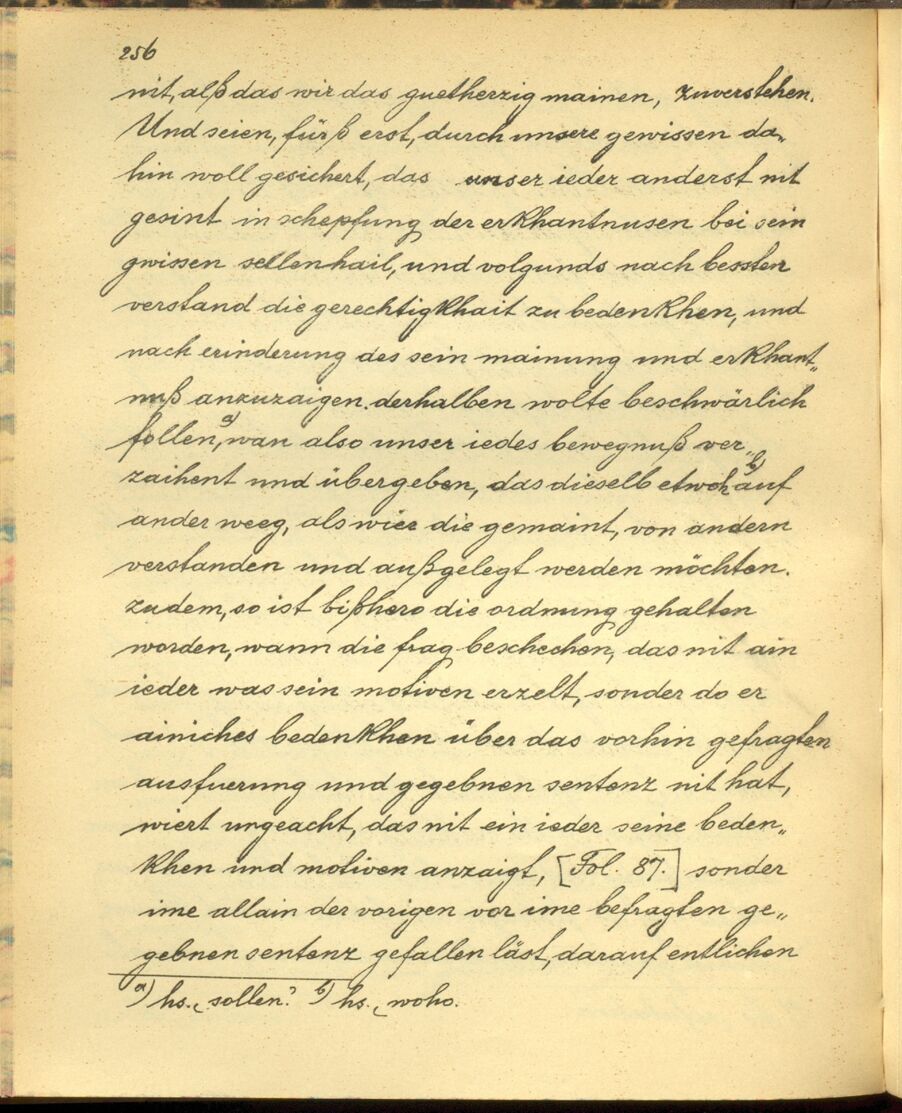 256
nit, alß das wir das guetherzig mainen, zuverstehen.
Und seien, fürß erst, durch unsere gewissen da„
hin woll gesichert, das unser ieder anderst nit
gesint in schepfung der erkhantnusen bei sein
gwissen sellenhail, und volgunds nach bessten
verstand die gerechtigkhait zu bedenkhen, und
nach erinderung des sein mainung und erkhant„
nuß anzuzaigen. derhalben wolte beschwärlich
follen,a) wan also unser iedes bewegnuß ver„
zaihent und übergeben, das dieselb etwohb) auf
ander weeg, als wier die gemaint, von andern
verstanden und außgelegt werden möchten.
zudem, so ist bißhero die ordnung gehalten
worden, wann die frag beschechen, das nit ain
ieder was sein motiven erzelt, sonder do er
ainiches bedenkhen über das vorhin gefragten
ausfuerung und gegebnen sentenz nit hat,
wiert ungeacht, das nit ein ieder seine beden„
khen und motiven anzaigt, [Fol. 87.] sonder
ime allain der vorigen vor ime befragten ge„
gebnen sentenz gefallen läst, darauf entlichen
a) hs. „sollen? b) hs. „woho.